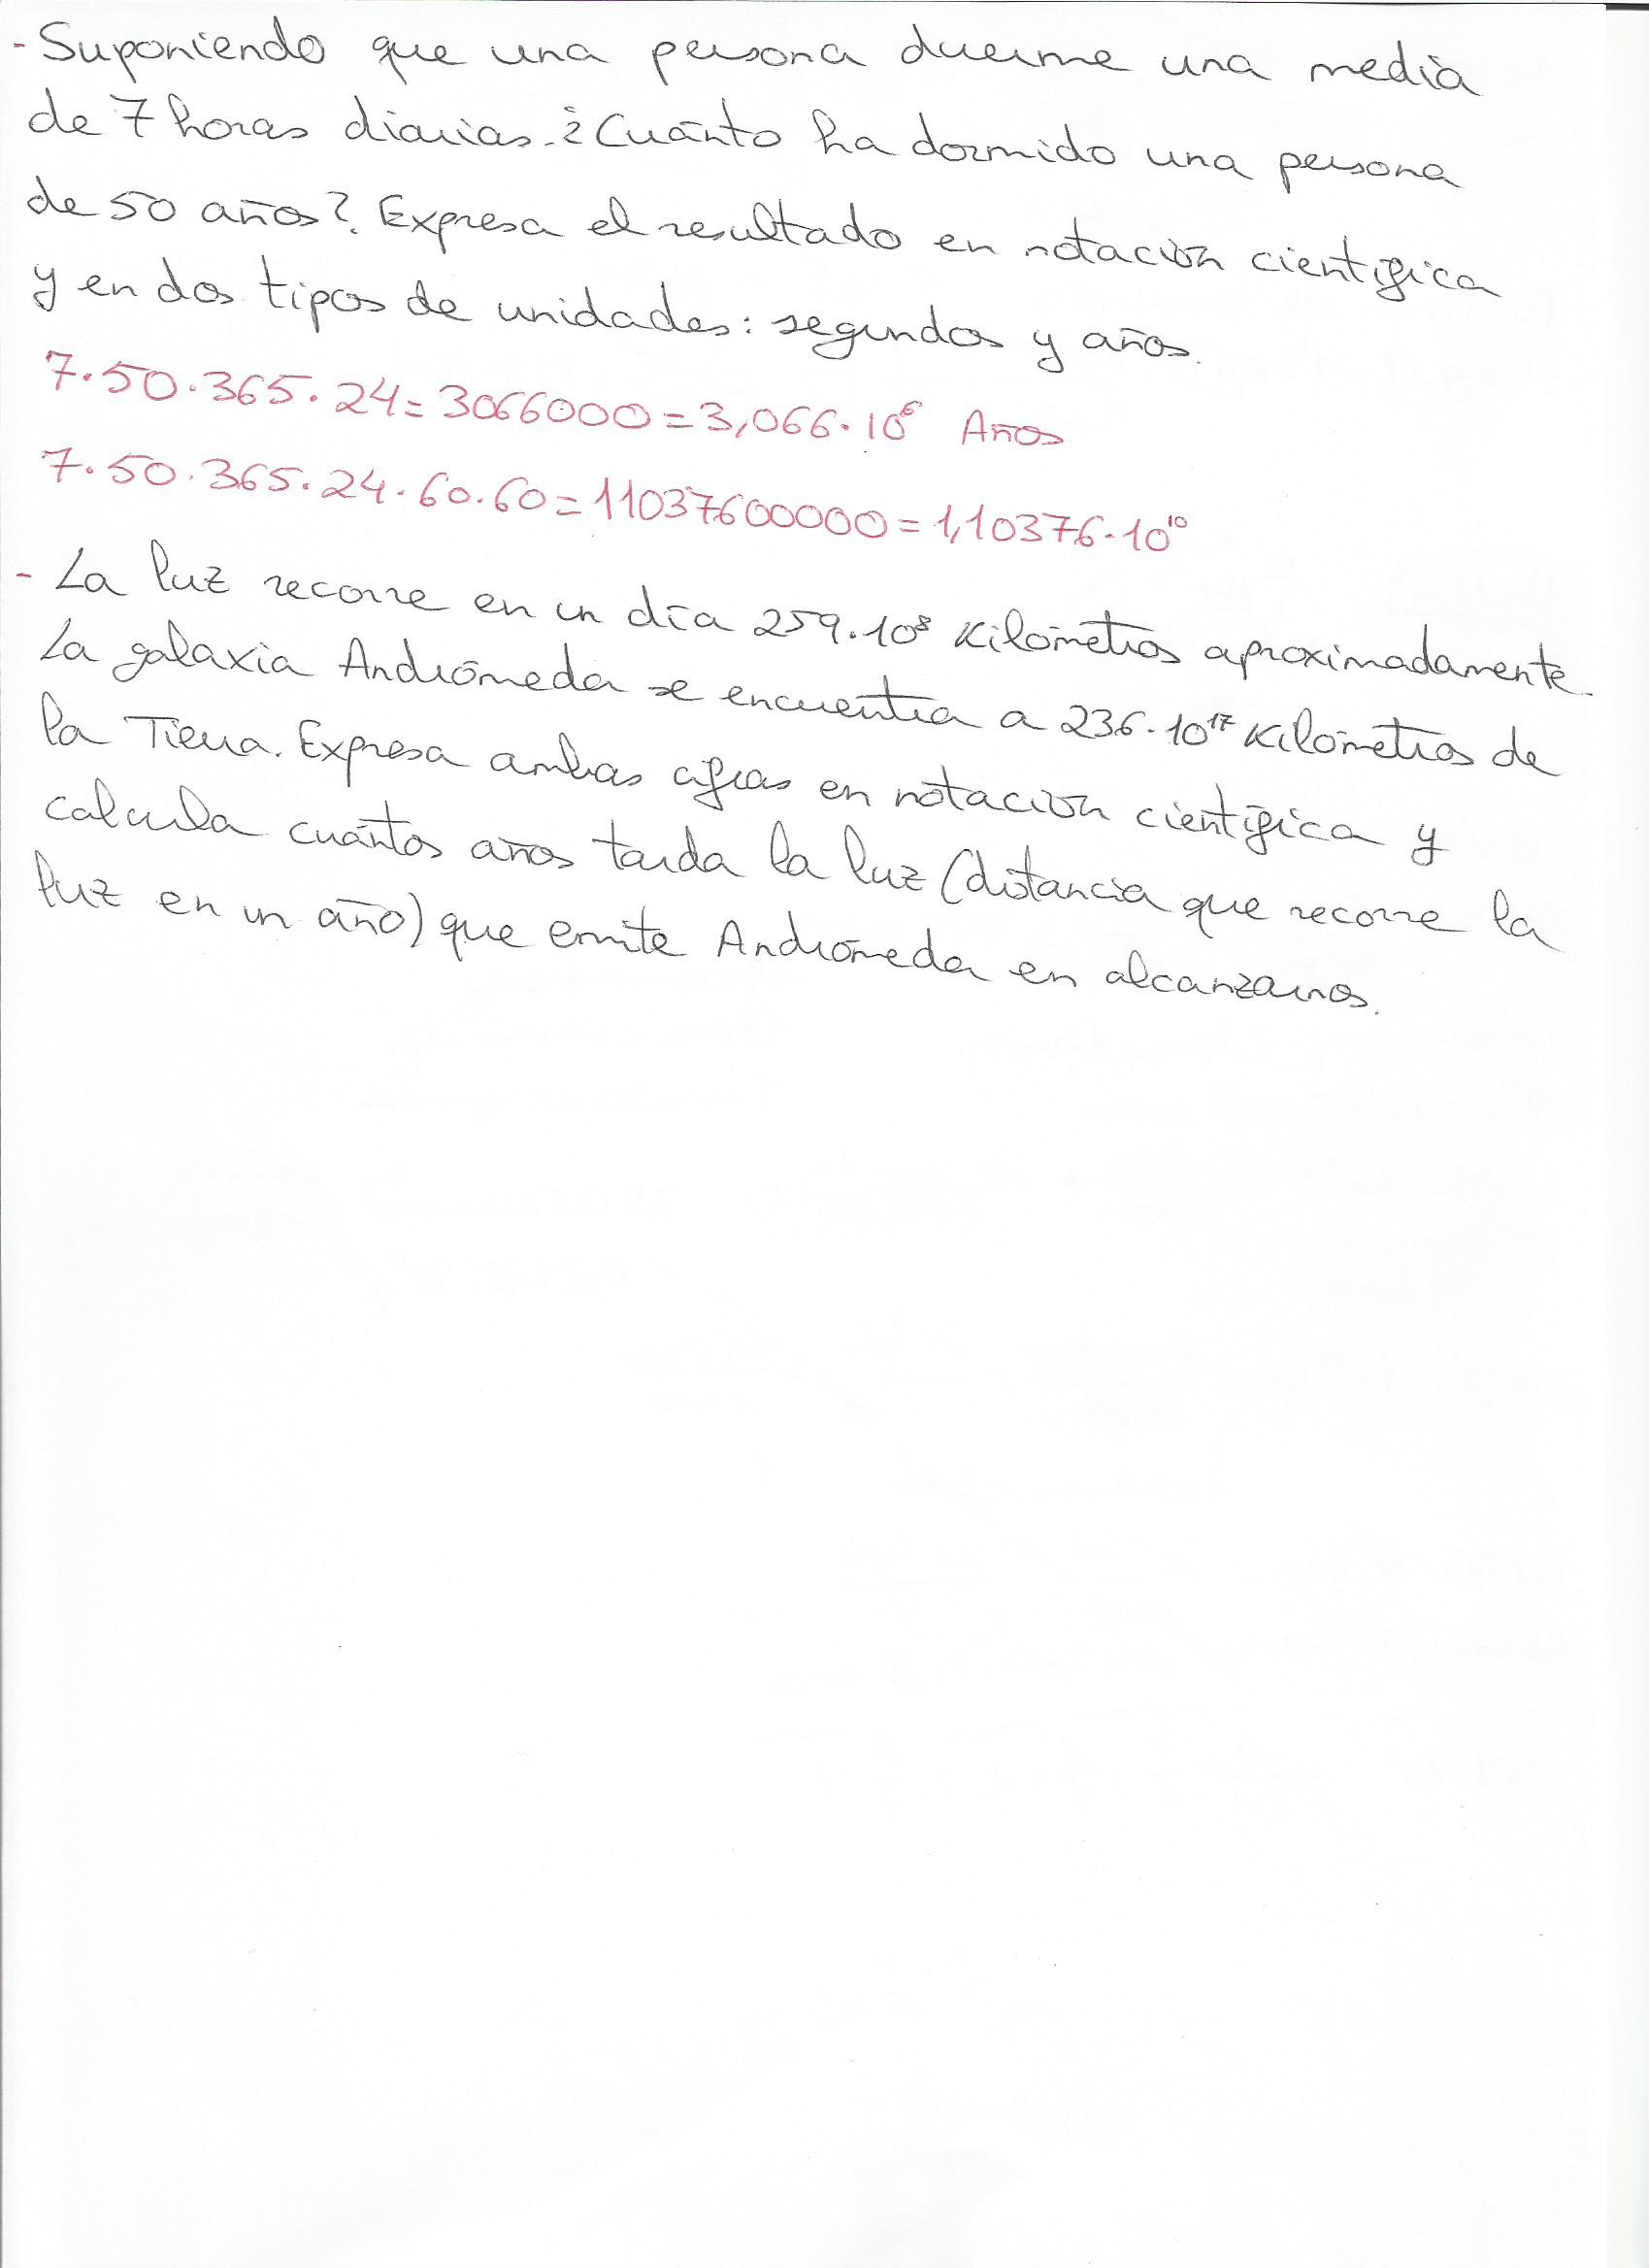 - Suponiendo que una persona duerme una media
de 7 horas diarias. ¿Cuánto ha dormido una persona
de 50 años?. Expresa el resultado en notación científica
y en dos tipos de unidades: segundos y años.
7·50·365·24=3066000=3,066·10⁶ Años
7·50·365·24·60·60=11037600000=1,10376·10¹⁰
- La luz recorre en un día 259·10⁸ Kilómetros aproximadamente.
La galaxia Andrómeda se encuentra a 236·10¹⁷ Kilómetros de
la Tierra. Expresa ambas cifras en notación científica y
calcula cuántos años tarda la luz (distancia que recorre la
luz en un año) que emite Andrómeda en alcanzarnos.